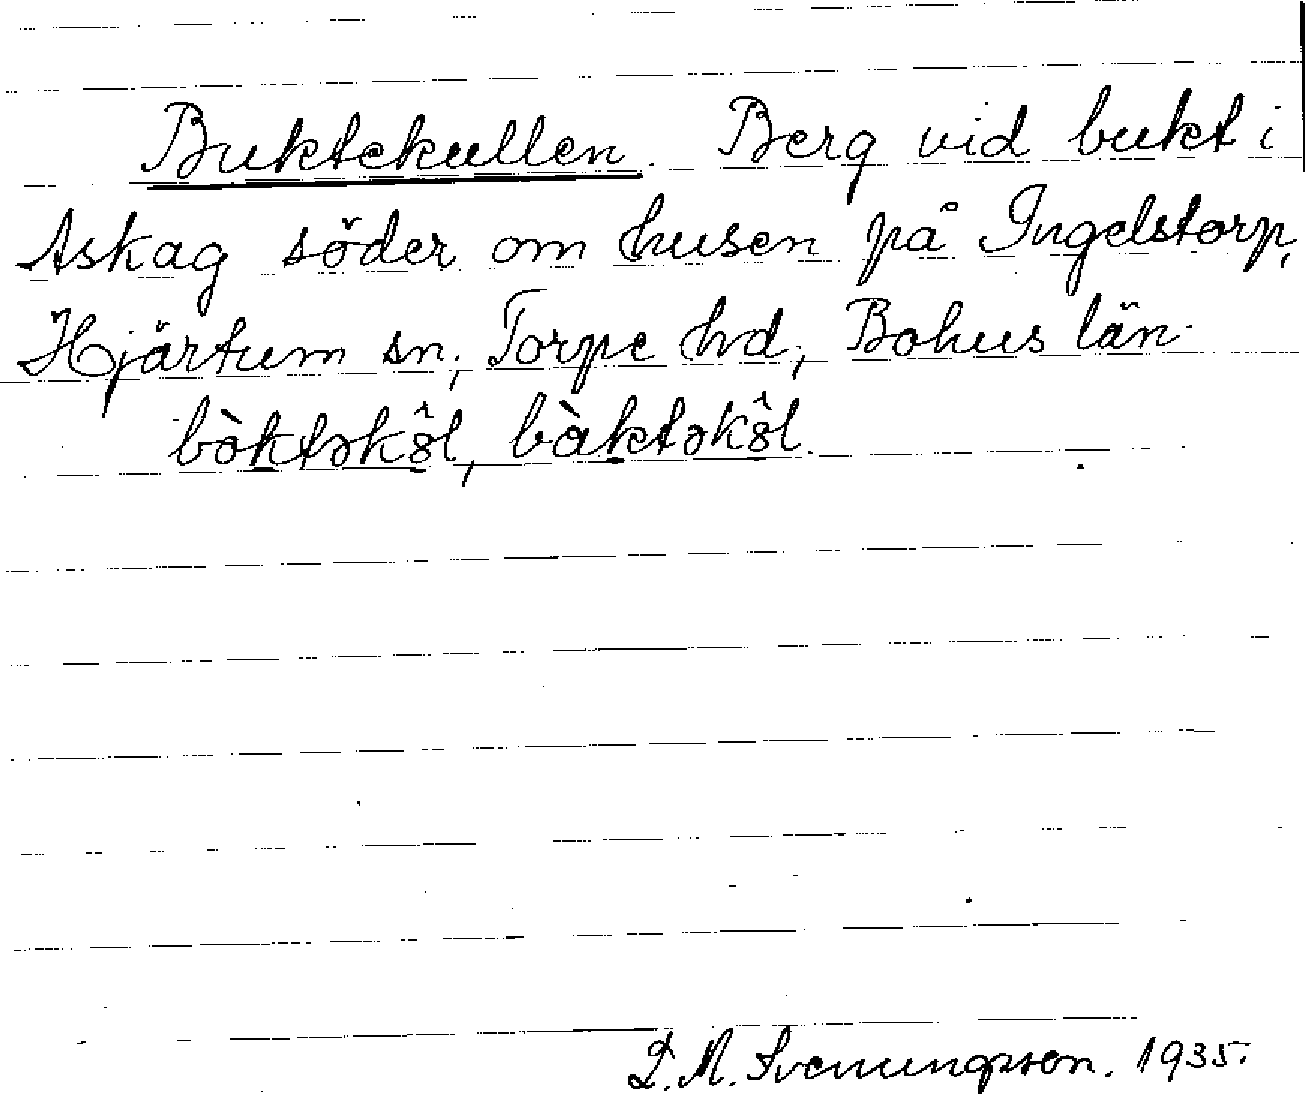 Buktekullen. Berg vid bukt i
Askag söder om husen på Ingelstorp,
Hjärtum sn, Torpe hd, Bohus län.
bòktəkôl, bàktəkôl.
D. M. Svenungsson. 1935.